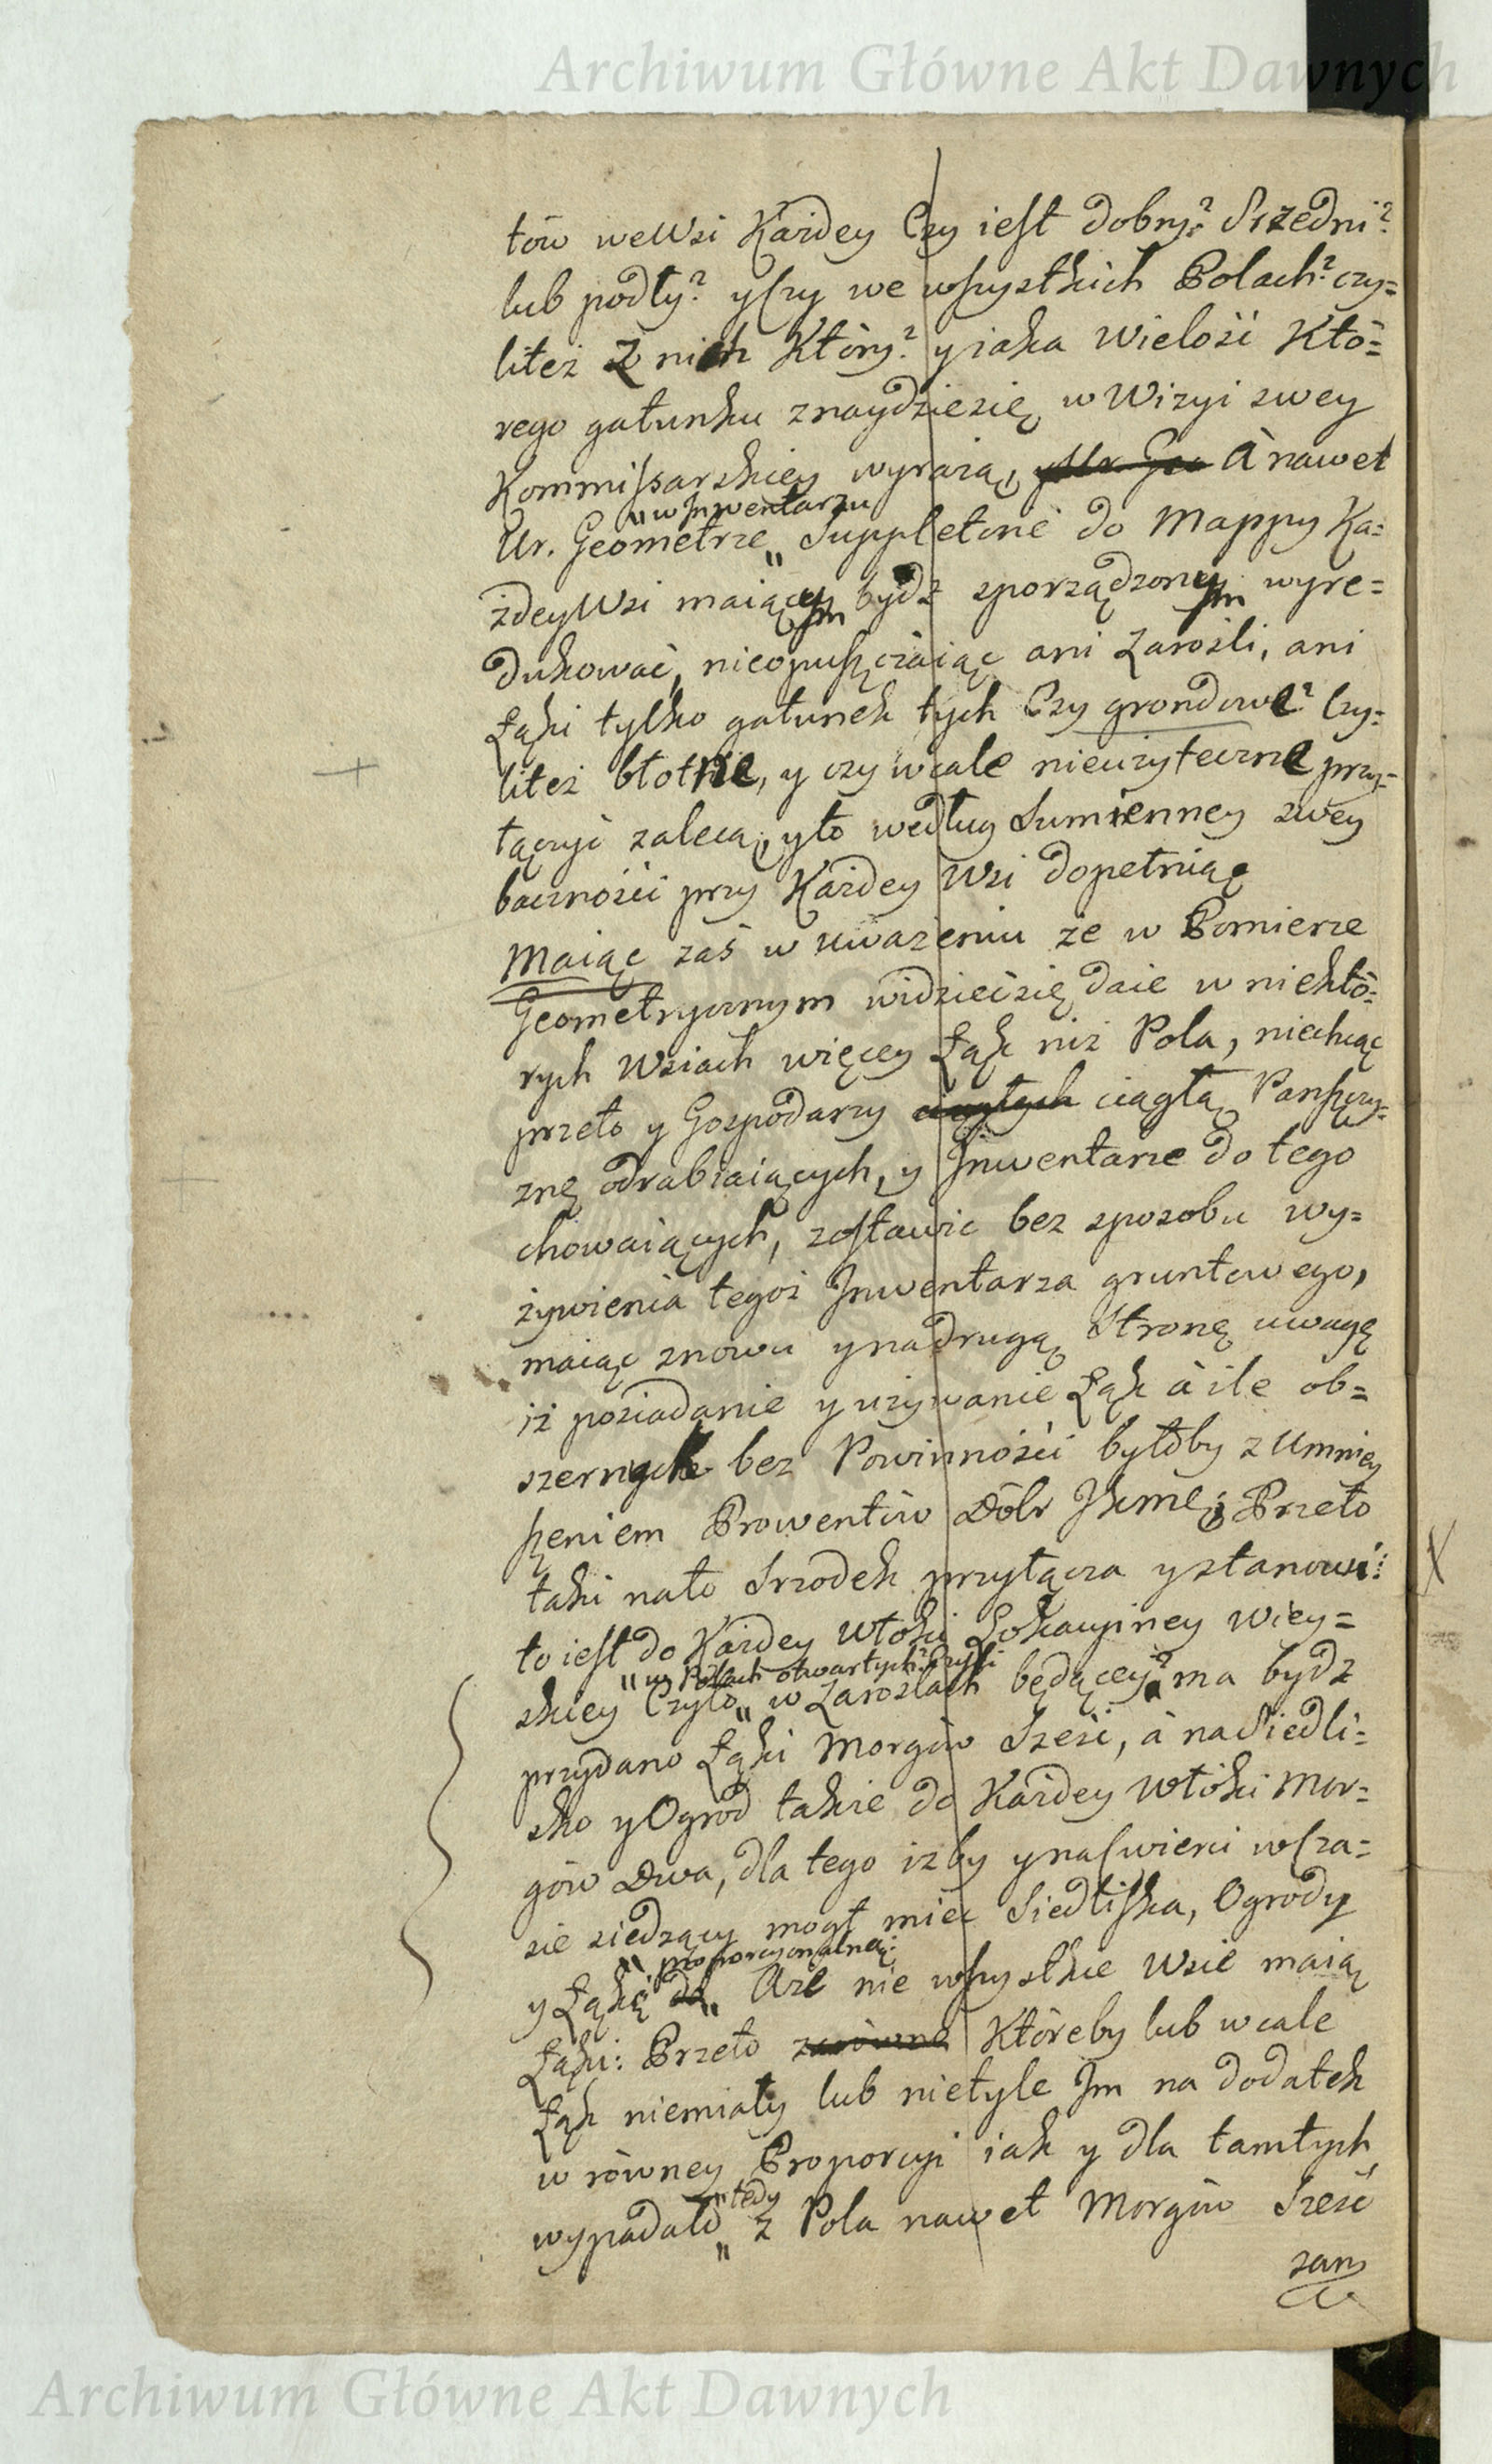 Archiwum Główne Akt Dawnych
tów we Wsi Każdey Czy iest dobry? Srzedni?
lub podły? y Czy we wszystkich Polach? czy=
liteż z nich Który? y iaka Wielość Któ=
rego gatunku znaydzie się w Wizyi swey
Kommissarskiey wyrażą, A nawet
" w Inwentarzu
Ur. Geometrze " Suppletorie do Mappy Ka=
żdey Wsi maiącym bydź sporządzonym wyre=
dukować, nieopuszczaiąc ani Zarośli, ani
Łąki tylko gatunek tych Czy grondowe? Czy=
liteż błotne, y czy wcale nieużyteczne przy=
łączyć zalecą, y to według Sumienney swey
baczności przy Każdey Wsi dopełnią
Maiąc zaś w uważeniu że w Pomierze
Geometrycznym widzieć się daie w niektó=
rych Wsiach więcey Łąk niż Pola, niechcąc
przeto y Gospodarzy ciągłych ciągłą Pańszczy=
znę odrabiaiących, y Inwentarze do tego
chowaiących, zostawić bez sposobu wy=
żywienia tegoż Inwentarza gruntowego,
maiąc znowu y na drugą Stronę uwagę
iż posiadanie y używanie Łąk à ile ob=
szernych bez Powinności byłoby z Umniey
szeniem Prowentów Dóbr Ikmci; Przeto
taki na to Srzodek przyłącza y stanowi:
to iest do Każdey Włóki Lokacyiney Wiey=
" w Polach otwartych? Czyli
skiey Czyto " w Zaroslach będącey? ma bydź
przydano Łąki Morgów Sześć, à na Siedli=
sko y Ogrod także do Każdey Włóki Mor=
gów Dwa, dla tego iżby y na Cwierci w Cza=
sie siedzący mogł miec Siedliska, Ogrody
" proporcyonalną:
y Łąkę " Aże nie wszystkie Wsie maią
Łąki: Przeto zarówne Któreby lub wcale
Łąk niemiały lub nietyle Im na dodatek
w równey Proporcyi iak y dla tamtych
" tedy
wypadało " z Pola nawet Morgów Sześć
Archiwum Główne Akt Dawnych